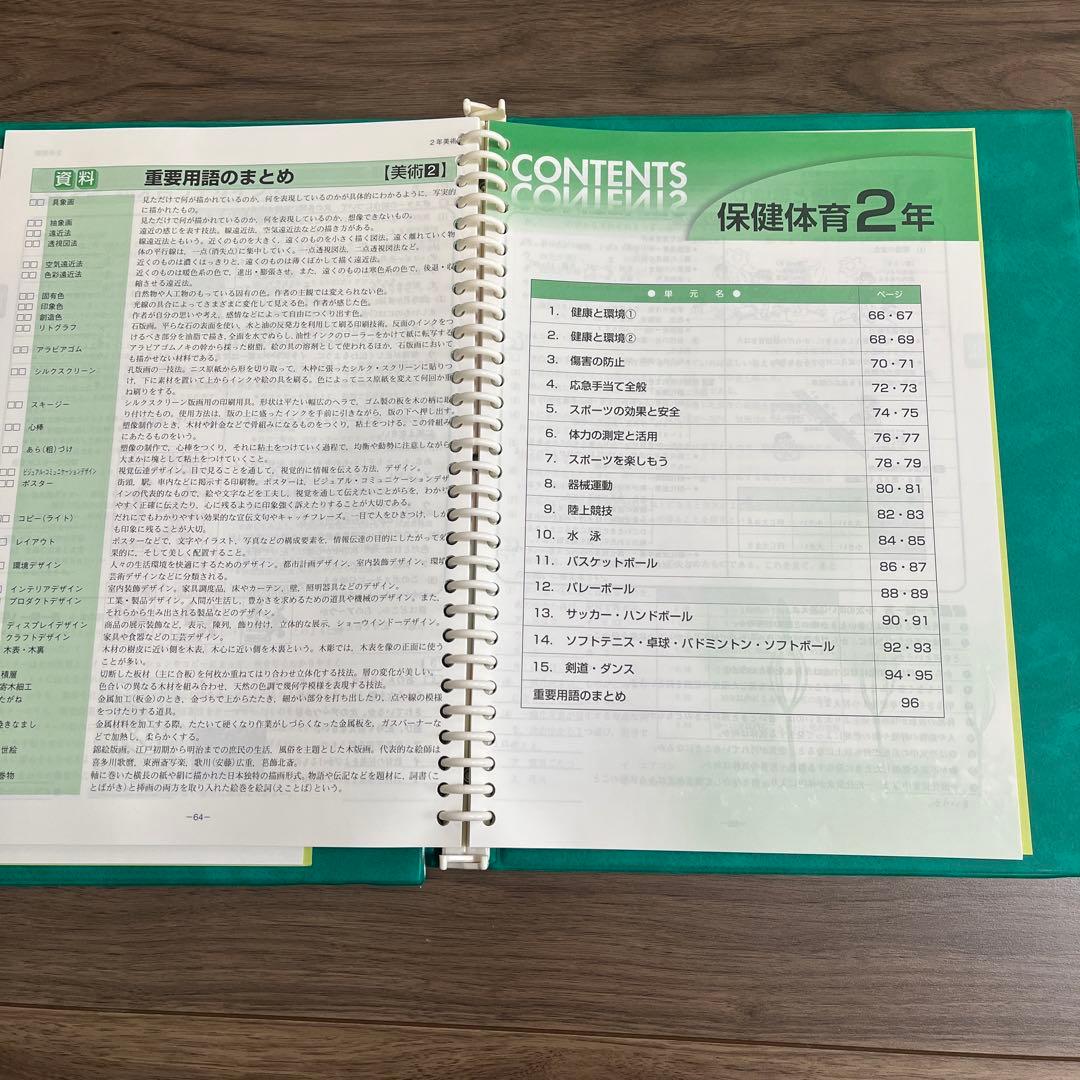 2年美術
資料 重要用語のまとめ 【美術2】
具象画 見ただけで何が描かれているのか、何を表現しているのかが具体的にわかるように、写実的
に描かれたもの。
抽象画 見ただけで何が描かれているのか、何を表現しているのか、想像できないもの。
遠近法 遠近の感じを表す技法。線遠近法、空気遠近法などの描き方がある。
透視図法 線遠近法ともいう。近くのものを大きく、遠くのものを小さく描く図法。遠く離れていく物
体の平行線は、一点(消失点)に集中していく。一点透視図法、二点透視図法など。
空気遠近法 近くのものは濃くはっきりと、遠くのものは薄くぼかして描く遠近法。
色彩遠近法 近くのものは暖色系の色で、進出・膨張させ、また、遠くのものは寒色系の色で、後退・収
縮させる遠近法。
固有色 自然物や人工物のもっている固有の色。作者の主観では変えられない色。
印象色 光線の具合によってさまざまに変化して見える色。作者が感じた色。
創造色 作者が自分の思いや考え、感情などによって自由につくり出す色。
リトグラフ 石版画。平らな石の表面を使い、水と油の反発力を利用して刷る印刷技術。反面のインクをつ
けるべき部分を油脂で描き、全面を水でぬらし、油性インクのローラーをかけて紙に転写する
アラビアゴム アラビアゴムノキの幹から採った樹脂。絵の具の溶剤として使われるほか、石版画において
も描かせない材料である。
シルクスクリーン 孔版画の一技法。ニス原紙から形を切り取って、木枠に張ったシルク・スクリーンに貼りつ
け、下に素材を置いて上からインクや絵の具を刷る。色によってニス原紙を変えて何回か重
ね刷りをする。
スキージー シルクスクリーン版画用の印刷用具。形状は平たい幅広のヘラで、ゴム製の板を木の柄に取
り付けたもの。使用方法は、版の上に盛ったインクを手前に引きながら、版の下へ押し出す。
心棒 塑像制作のとき、木材や針金などで骨組みになるものをつくり、粘土をつける。この骨組み
にあたるものをいう。
あら(粗)づけ 塑像の制作で、心棒をつくり、それに粘土をつけていく過程で、均衡や動勢に注意しながら
大まかに塊として粘土をつけていくこと。
ビジュアル・コミュニケーションデザイン 視覚伝達デザイン。目で見ることを通して、視覚的に情報を伝える方法、デザイン。
ポスター 街頭、駅、車内などに掲示する印刷物。ポスターは、ビジュアル・コミュニケーションデザ
インの代表的なもので、絵や文字などを工夫し、視覚を通して伝えたいことがらを、わかり
やすく正確に伝えたり、心に残るように印象強く訴えたりすることが大切である。
コピー(ライト) だれにでもわかりやすい効果的な宣伝文句やキャッチフレーズ。一目で人をひきつけ、しか
も印象に残ることが大切。
レイアウト ポスターなどで、文字やイラスト、写真などの構成要素を、情報伝達の目的にしたがって効
果的に、そして美しく配置すること。
環境デザイン 人々の生活環境を快適にするためのデザイン。都市計画デザイン、室内装飾デザイン、環境
芸術デザインなどに分類される。
インテリアデザイン 室内装飾デザイン。家具調度品、床やカーテン、壁、照明器具などのデザイン。
プロダクトデザイン 工業・製品デザイン。人間が生活し、豊かさを求めるための道具や機械のデザイン。また、
それらから生み出される製品などのデザイン。
ディスプレイデザイン 商品の展示装飾など、表示、陳列、飾り付け、立体的な展示、ショーウインドーデザイン。
クラフトデザイン 家具や食器などの工芸デザイン。
木表・木裏 木材の樹皮に近い側を木表、木心に近い側を木裏という。木彫では、木表を像の正面に使う
ことが多い。
積層 切断した板材(主に合板)を何枚か重ねてはり合わせ立体化する技法。層の変化が美しい。
寄木細工 色合いの異なる木材を組み合わせ、天然の色調で幾何学模様を表現する技法。
たがね 金属加工(板金)のとき、金づちで上からたたき、細かい部分を打ち出したり、点や線の模様
をつけたりする道具。
焼きなまし 金属材料を加工する際、たたいて硬くなり作業がしづらくなった金属板を、ガスバーナーな
どで加熱し、柔らかくする。
世絵 錦絵版画。江戸初期から明治までの庶民の生活、風俗を主題とした木版画。代表的な絵師は
喜多川歌麿、東洲斎写楽、歌川(安藤)広重、葛飾北斎。
巻物 軸に巻いた横長の紙や絹に描かれた日本独特の描画形式。物語や伝記などを題材に、詞書(こ
とばがき)と挿画の両方を取り入れた絵巻を絵詞(えことば)という。
−64−
CONTENTS
保健体育2年
●単元名● ページ
1. 健康と環境① 66・67
2. 健康と環境② 68・69
3. 傷害の防止 70・71
4. 応急手当て全般 72・73
5. スポーツの効果と安全 74・75
6. 体力の測定と活用 76・77
7. スポーツを楽しもう 78・79
8. 器械運動 80・81
9. 陸上競技 82・83
10. 水 泳 84・85
11. バスケットボール 86・87
12. バレーボール 88・89
13. サッカー・ハンドボール 90・91
14. ソフトテニス・卓球・バドミントン・ソフトボール 92・93
15. 剣道・ダンス 94・95
重要用語のまとめ 96